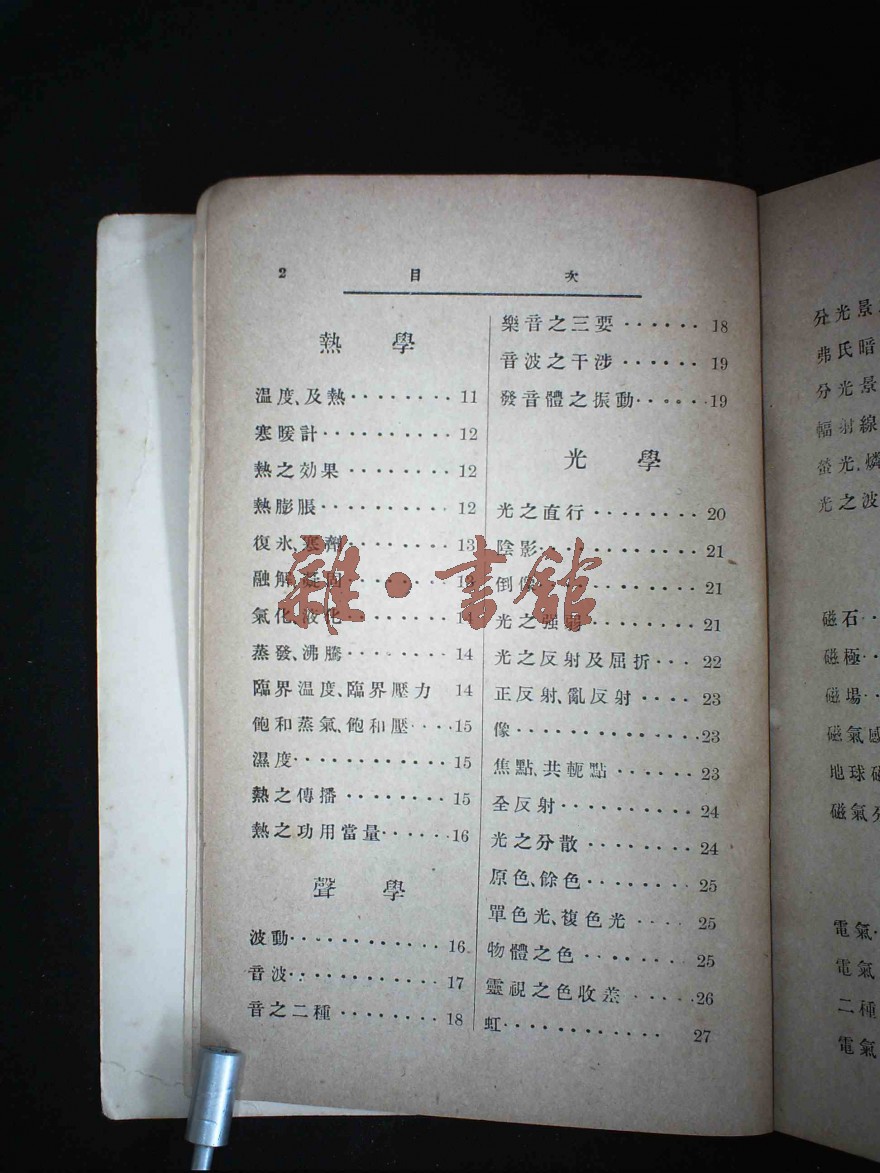 2 目 次
熱 學
温度、及熱········11
寒暖計··········12
熱之効果········12
熱膨脹··········12
復氷、寒劑········13
融解、凝固········13
氣化、液化········14
蒸發、沸騰········14
臨界温度、臨界壓力 14
飽和蒸氣、飽和壓····15
濕度············15
熱之傳播········15
熱之功用當量······16
聲 學
波動············16
音波············17
音之二種········18
樂音之三要······18
音波之干涉······19
發音體之振動······19
光 學
光之直行········20
陰影············21
倒像············21
光之强弱········21
光之反射及屈折···22
正反射、亂反射····23
像··············23
焦點、共軛點······23
全反射··········24
光之分散········24
原色、餘色········25
單色光、複色光····25
物體之色········25
靈視之色收差·····26
虹·············27
分光景
弗氏暗
分光景
輻射線
螢光、燐
光之波
磁石··
磁極··
磁場··
磁氣感
地球磁
磁氣分
電氣·
電氣
二種
電氣
雜·書館